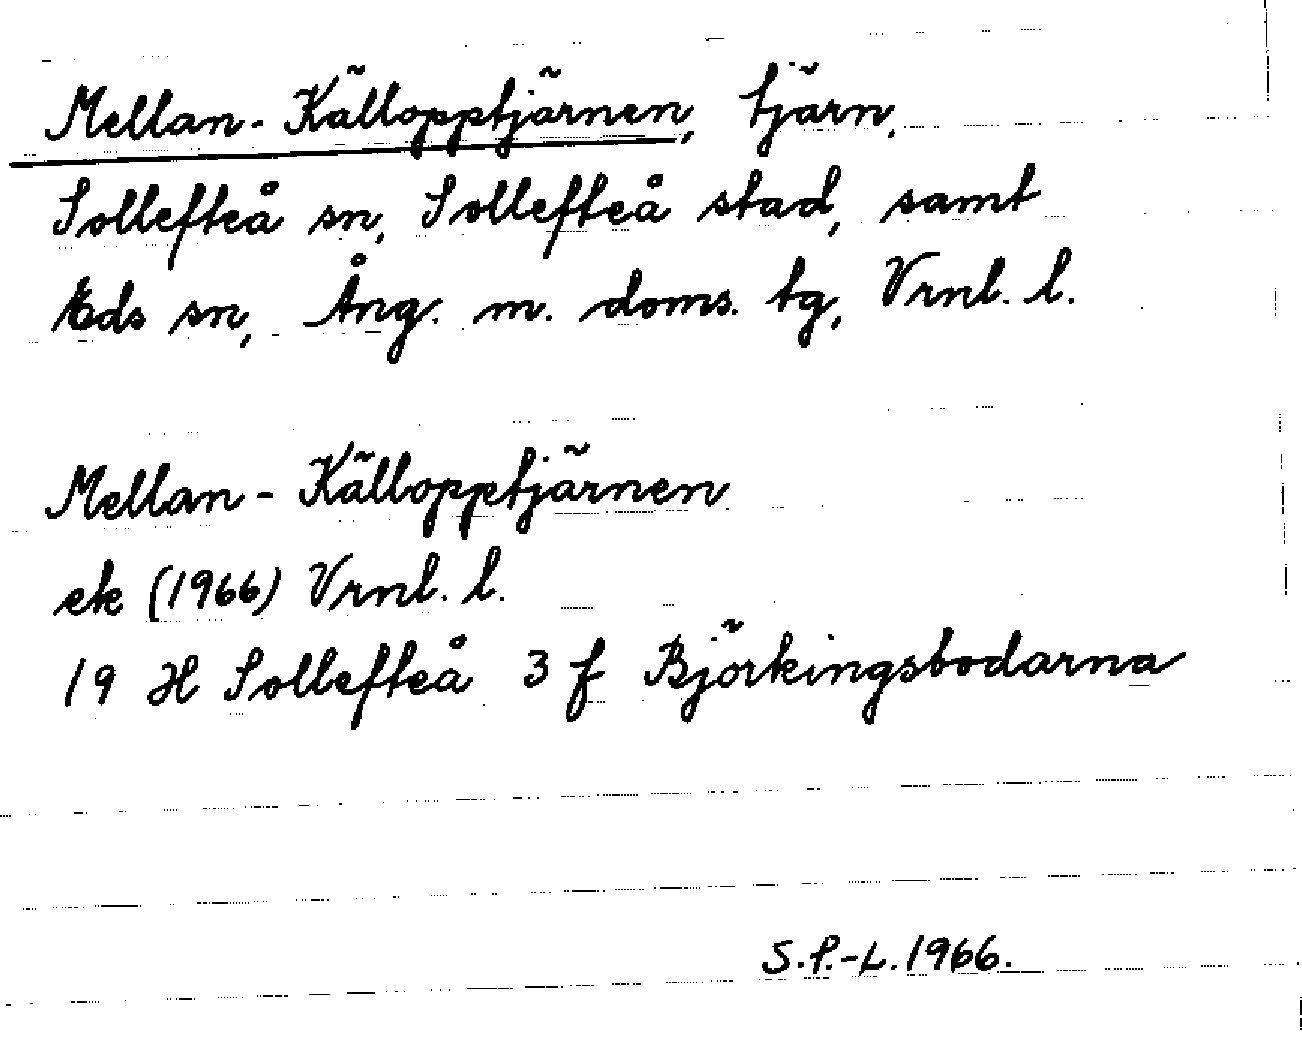 Mellan-Källopptjärnen, tjärn,
Sollefteå sn, Sollefteå stad, samt
Eds sn, Ång. m. doms. tg, Vrnl. l.
Mellan-Källopptjärnen
ek (1966) Vrnl. l.
19 H Sollefteå 3 f Björkingsbodarna
S.P.-L. 1966.